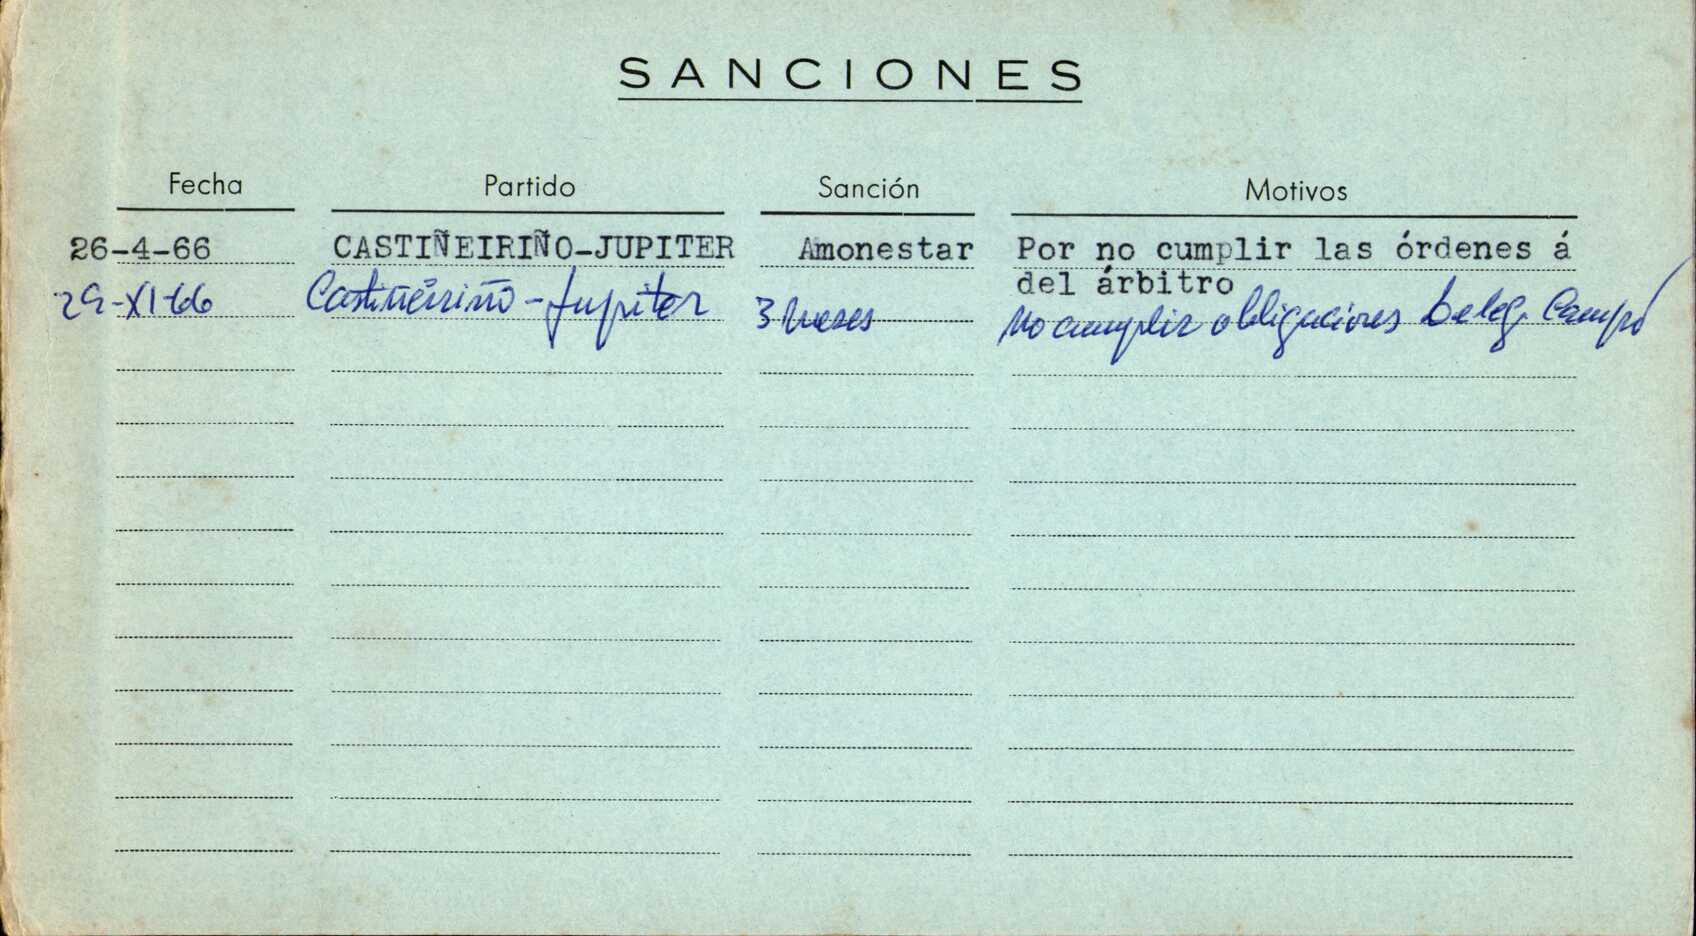 SANCIONES
Fecha Partido Sanción Motivos
26-4-66 CASTIÑEIRIÑO-JUPITER Amonestar Por no cumplir las órdenes á
del árbitro
29-XI-66 Castiñeiriño-Jupiter 3 meses No cumplir obligaciones Deleg. Campo